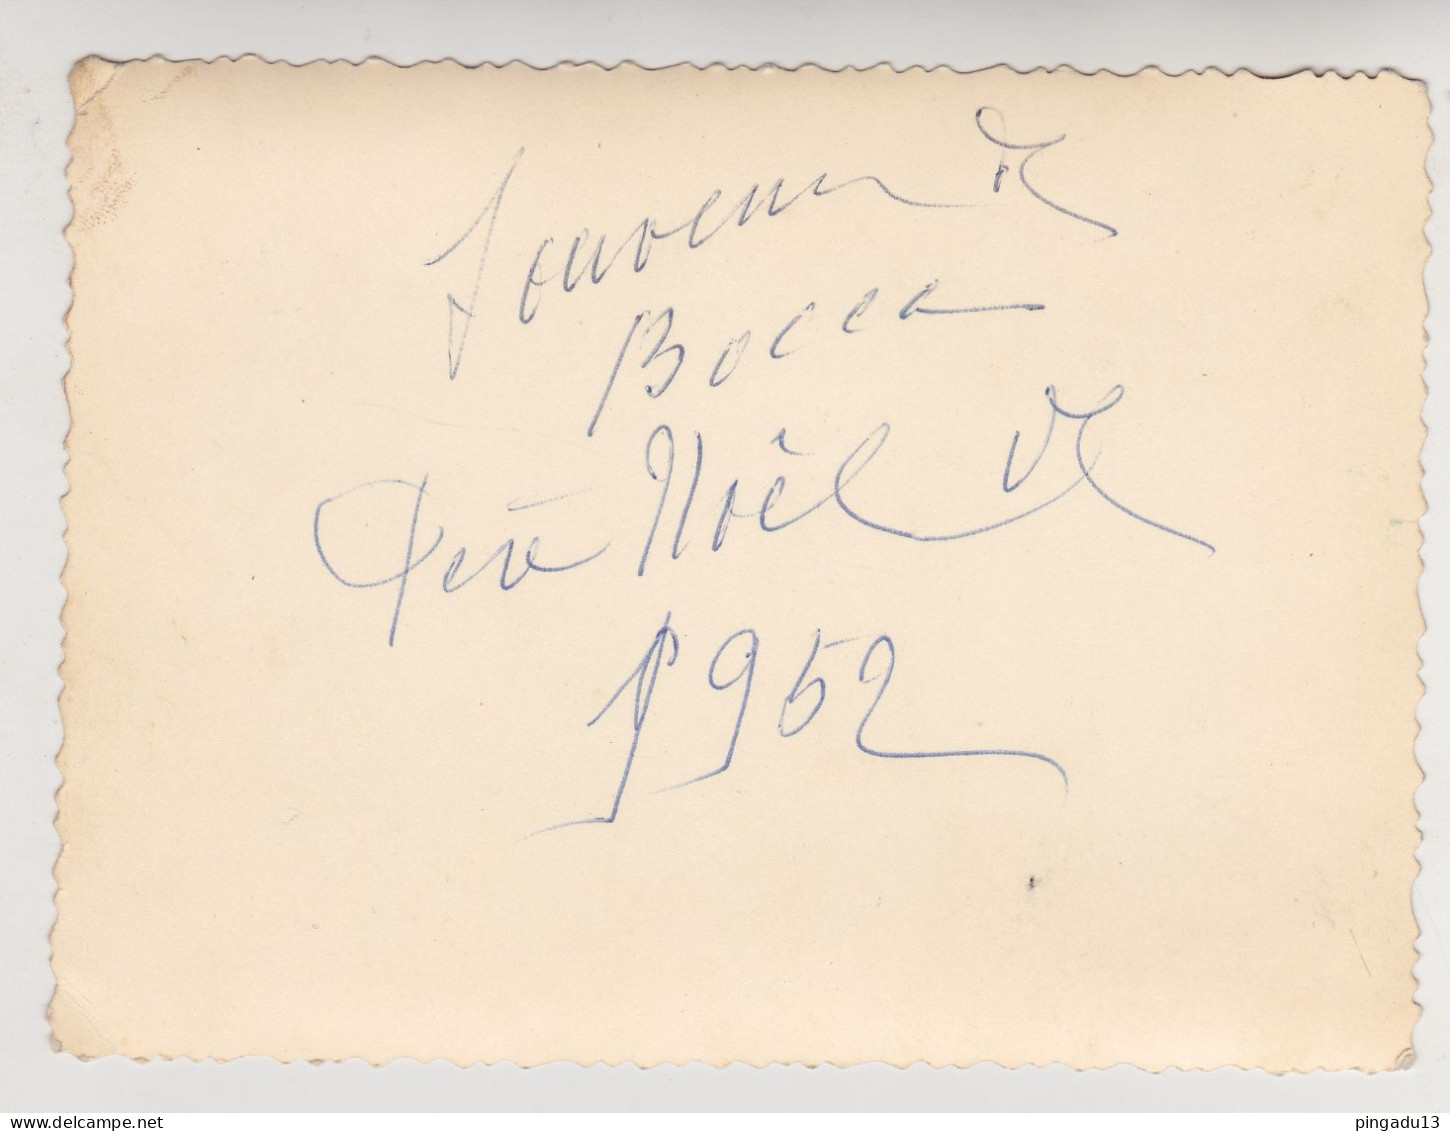 Souvenir de
Bocca
Père Noël de
1952
www.delcampe.net
pingadu13